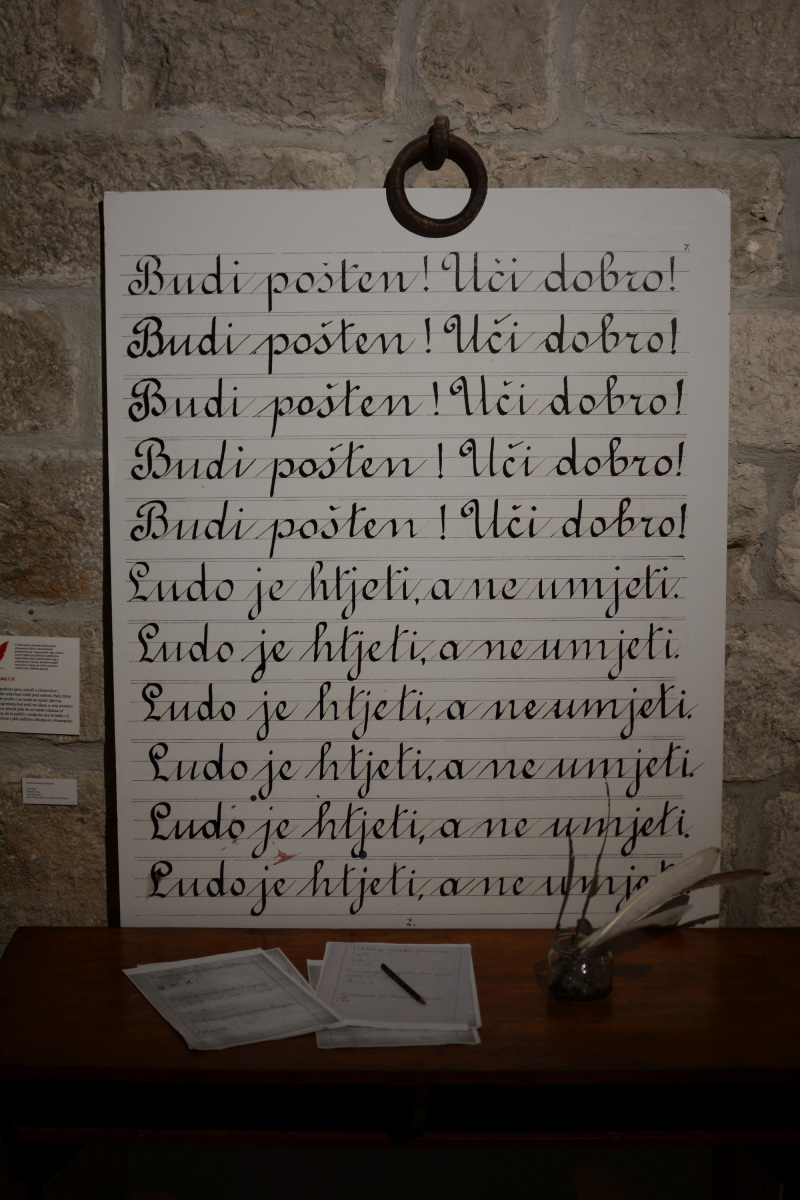 Budi pošten! Uči dobro!
Budi pošten! Uči dobro!
Budi pošten! Uči dobro!
Budi pošten! Uči dobro!
Budi pošten! Uči dobro!
Ludo je htjeti, a ne umjeti.
Ludo je htjeti, a ne umjeti.
Ludo je htjeti, a ne umjeti.
Ludo je htjeti, a ne umjeti.
Ludo je htjeti, a ne umjeti.
Ludo je htjeti, a ne umjeti.
2.